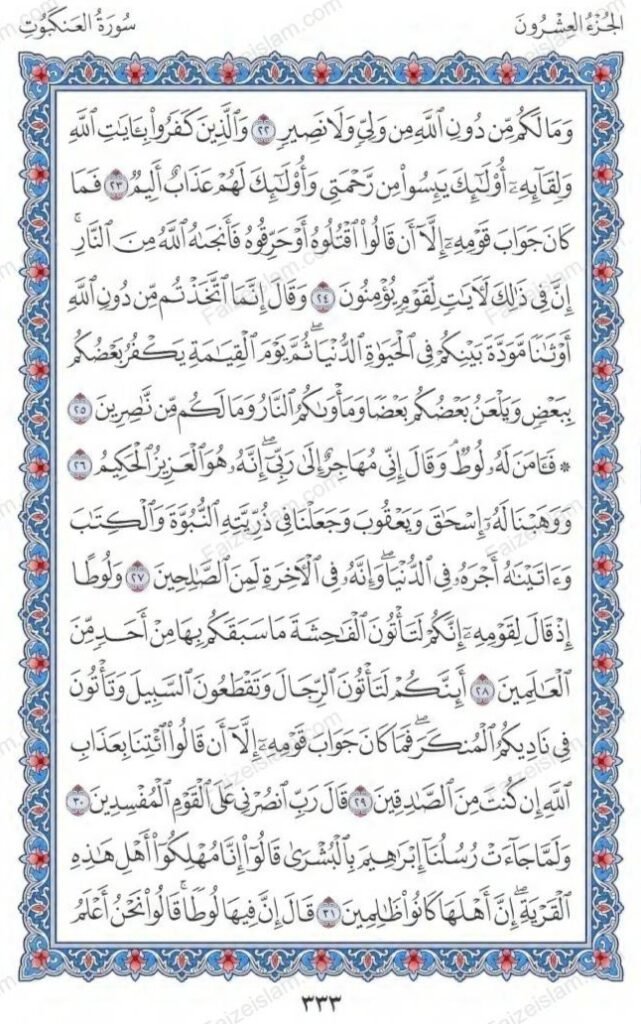 الجُزْءُ العِشْرُونَ
سُورَةُ العَنكَبُوتِ
وَمَا لَكُم مِّن دُونِ ٱللَّهِ مِن وَلِيّٖ وَلَا نَصِيرٖ ٢٢ وَٱلَّذِينَ كَفَرُواْ بِـَٔايَٰتِ ٱللَّهِ
وَلِقَآئِهِۦٓ أُوْلَٰٓئِكَ يَئِسُواْ مِن رَّحۡمَتِي وَأُوْلَٰٓئِكَ لَهُمۡ عَذَابٌ أَلِيمٞ ٢٣ فَمَا
كَانَ جَوَابَ قَوۡمِهِۦٓ إِلَّآ أَن قَالُواْ ٱقۡتُلُوهُ أَوۡ حَرِّقُوهُ فَأَنجَىٰهُ ٱللَّهُ مِنَ ٱلنَّارِۚ
إِنَّ فِي ذَٰلِكَ لَأٓيَٰتٖ لِّقَوۡمٖ يُؤۡمِنُونَ ٢٤ وَقَالَ إِنَّمَا ٱتَّخَذۡتُم مِّن دُونِ ٱللَّهِ
أَوۡثَٰنٗا مَّوَدَّةَ بَيۡنِكُمۡ فِي ٱلۡحَيَوٰةِ ٱلدُّنۡيَاۖ ثُمَّ يَوۡمَ ٱلۡقِيَٰمَةِ يَكۡفُرُ بَعۡضُكُم
بِبَعۡضٖ وَيَلۡعَنُ بَعۡضُكُم بَعۡضٗا وَمَأۡوَىٰكُمُ ٱلنَّارُ وَمَا لَكُم مِّن نَّٰصِرِينَ ٢٥
۞ فَـَٔامَنَ لَهُۥ لُوطٞۘ وَقَالَ إِنِّي مُهَاجِرٌ إِلَىٰ رَبِّيٓۖ إِنَّهُۥ هُوَ ٱلۡعَزِيزُ ٱلۡحَكِيمُ ٢٦
وَوَهَبۡنَا لَهُۥٓ إِسۡحَٰقَ وَيَعۡقُوبَ وَجَعَلۡنَا فِي ذُرِّيَّتِهِ ٱلنُّبُوَّةَ وَٱلۡكِتَٰبَ
وَءَاتَيۡنَٰهُ أَجۡرَهُۥ فِي ٱلدُّنۡيَاۖ وَإِنَّهُۥ فِي ٱلۡأٓخِرَةِ لَمِنَ ٱلصَّٰلِحِينَ ٢٧ وَلُوطًا
إِذۡ قَالَ لِقَوۡمِهِۦٓ إِنَّكُمۡ لَتَأۡتُونَ ٱلۡفَٰحِشَةَ مَا سَبَقَكُم بِهَا مِنۡ أَحَدٖ مِّنَ
ٱلۡعَٰلَمِينَ ٢٨ أَئِنَّكُمۡ لَتَأۡتُونَ ٱلرِّجَالَ وَتَقۡطَعُونَ ٱلسَّبِيلَ وَتَأۡتُونَ
فِي نَادِيكُمُ ٱلۡمُنكَرَۖ فَمَا كَانَ جَوَابَ قَوۡمِهِۦٓ إِلَّآ أَن قَالُواْ ٱئۡتِنَا بِعَذَابِ
ٱللَّهِ إِن كُنتَ مِنَ ٱلصَّٰدِقِينَ ٢٩ قَالَ رَبِّ ٱنصُرۡنِي عَلَى ٱلۡقَوۡمِ ٱلۡمُفۡسِدِينَ ٣٠
وَلَمَّا جَآءَتۡ رُسُلُنَآ إِبۡرَٰهِيمَ بِٱلۡبُشۡرَىٰ قَالُوٓاْ إِنَّا مُهۡلِكُوٓاْ أَهۡلِ هَٰذِهِ
ٱلۡقَرۡيَةِۖ إِنَّ أَهۡلَهَا كَانُواْ ظَٰلِمِينَ ٣١ قَالَ إِنَّ فِيهَا لُوطٗاۚ قَالُواْ نَحۡنُ أَعۡلَمُ
٣٣٣
Faizeislam.com